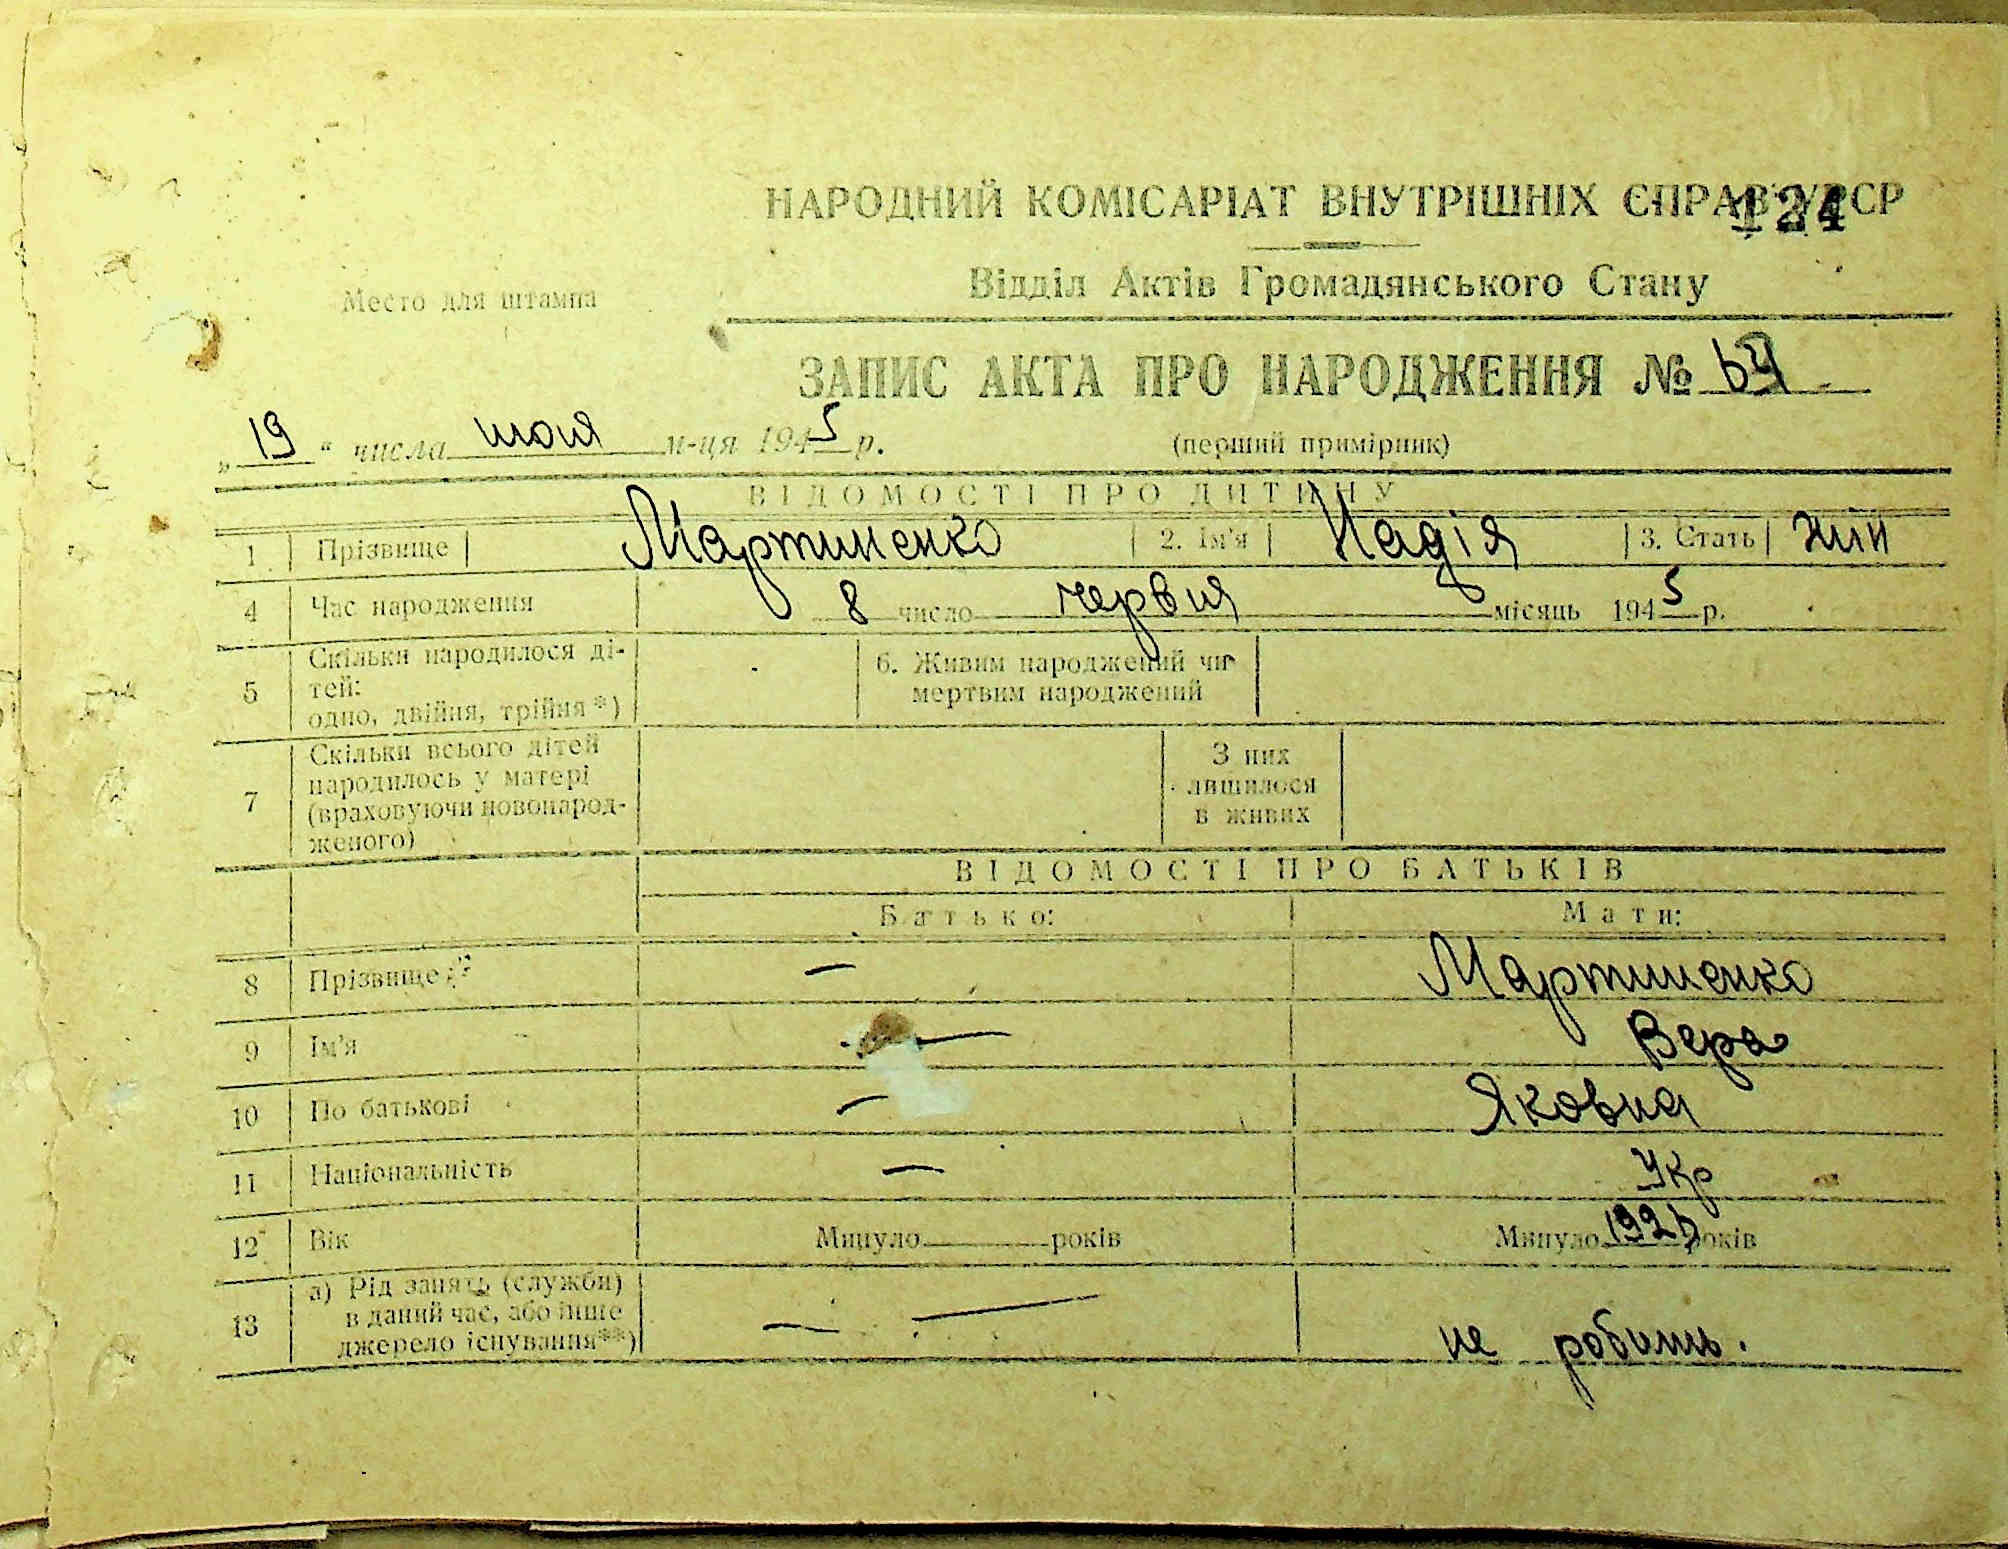 НАРОДНИЙ КОМІСАРІАТ ВНУТРІШНІХ СПРАВ УРСР
124
Відділ Актів Громадянського Стану
Место для штампа
ЗАПИС АКТА ПРО НАРОДЖЕННЯ №
„19“ числа июля м-ця 1945 р.
(перший примірник)
ВІДОМОСТІ ПРО ДИТИНУ
1 Прізвище Мартиненко 2. Ім'я Надія 3. Стать жін
4 Час народження 8 число червня місяць 1945 р.
5 Скільки народилося ді-
тей:
одно, двійня, трійня *)
6. Живим народжений чи
мертвим народжений
7 Скільки всього дітей
народилось у матері
(враховуючи новонарод-
женого)
З них
лишилося
в живих
ВІДОМОСТІ ПРО БАТЬКІВ
Батько: Мати:
8 Прізвище — Мартиненко
9 Ім'я — Вера
10 По батькові — Яковна
11 Національність — Укр
12 Вік Минуло років Минуло 1926 років
13 а) Рід занять (служби)
в даний час, або інше
джерело існування**)
— — не робить.